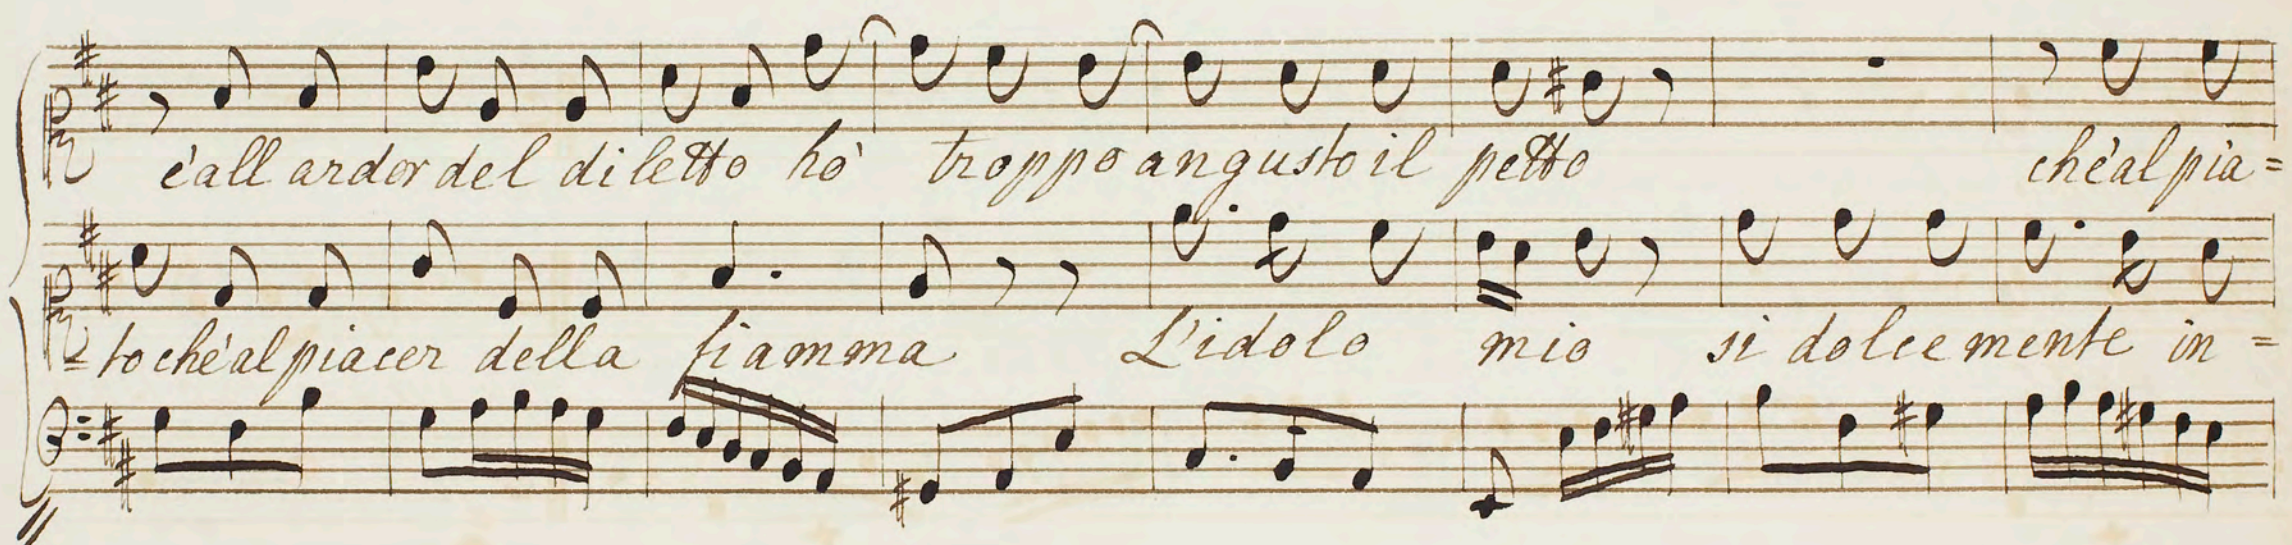 è all ardor del diletto hò troppo angusto il petto che al pia=
=to chè al piacer della fiamma L'idolo mio si dolcemente in=